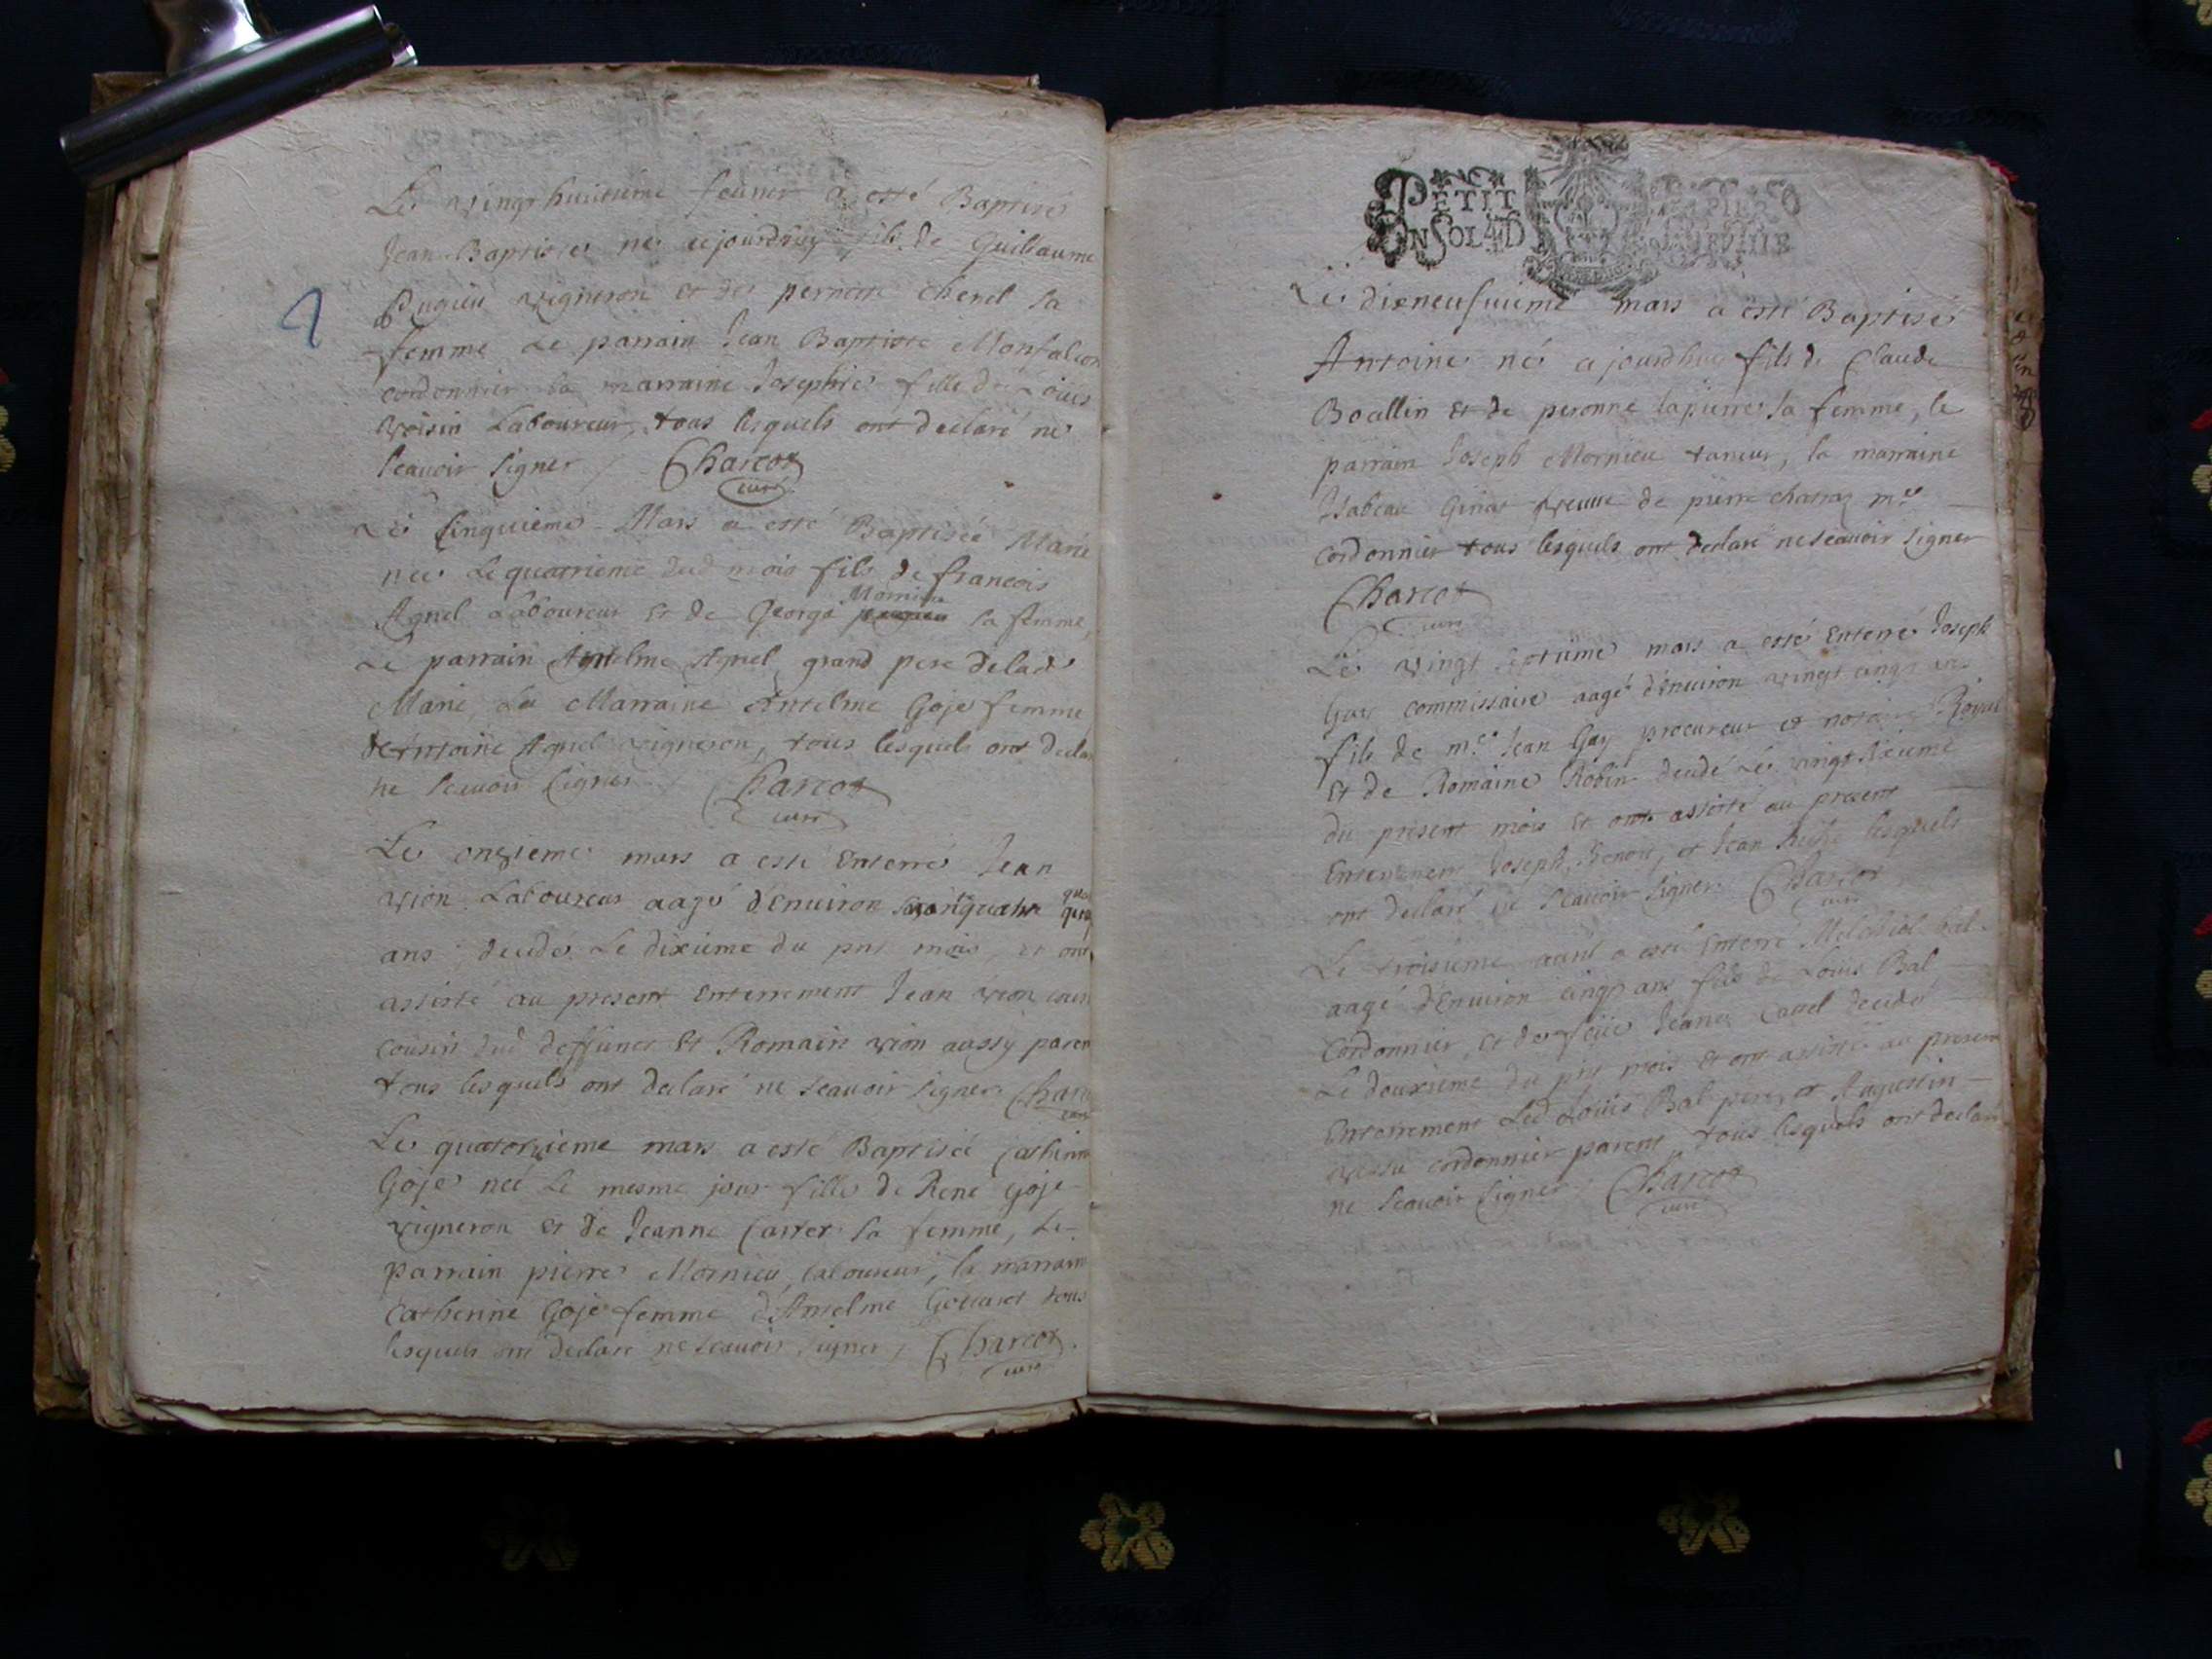 Le vingt huitieme feurier a esté Baptisé
Jean Baptiste né cejourdhuy fils de Guillaume
Pugieu vigneron et de pernete chenel sa
femme Le parrain Jean Baptiste Montfalcon
cordonnier la marraine Josephte fille de Loüis
voisin Laboureur, tous lesquels ont declaré ne
scauoir signer / Charcot
curé
Le cinquieme Mars a esté Baptisée Marie
née Le quatrieme dud mois fils de francois
Agnel Laboureur et de George Mornieu sa femme,
Le parrain Antelme Agnel grand pere de lad
Marie, La Marraine Antelme Goje femme
d'Antoine Agnel vigneron, tous lesquels ont decla
ne scauoir signer Charcot
curé
Le onzieme mars a esté Enterré Jean
vion Laboureur aagé d'Enuiron
ans, decedé Le dixieme du pnt mois, et ont
assisté au present Enterrement Jean vion
cousin dud deffunct Et Romain vion aussy paren
tous lesquels ont declaré ne scauoir signer Charc
curé
Le quatorzieme mars a esté Baptisée Catherine
Goje née Le mesme jour fille de René Goje
vigneron et de Jeanne Carret sa femme, Le
parrain pierre Mornieu, laboureur, la marraine
Catherine Goje femme d'Antelme tous
lesquels ont declaré ne scauoir signer, Charcot
curé
PETIT PAPIER
UN SOL 4 D LA FEUILLE
Le dixneufuieme mars a esté Baptisé
Antoine né cejourdhuy fils de Claude
Boullin et de peronne lapierre sa femme, le
parrain Joseph Mornieu taneur, la marraine
Isabeau Ginat veuue de pierre charraz me
cordonnier tous lesquels ont declaré ne scauoir signer
Charcot
curé
Le vingt septieme mars a esté Enterré Joseph
Guy commissaire aagé d'Enuiron vingt cinq
fils de me Jean Guy procureur et notaire Roÿal
et de Romaine Robin decedé Le vingt sixieme
du present mois Et ont assisté au present
Enterrement Joseph, Benoit, et Jean lesquels
ont declaré ne scauoir signer Charcot
curé
Le troisieme auril a esté Enterré Melchiol bal
aagé d'Enuiron cinq ans fils de Loüis Bal
Cordonnier, et de feüe Jeane decedé
Le deuxieme du pnt mois Et ont assisté au present
Enterrement Led Loüis Bal pere, et Augustin
cordonnier parent tous lesquels ont declaré
ne scauoir signer Charcot
curé